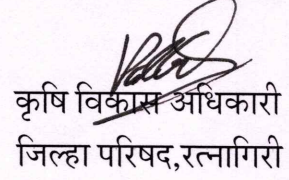 कृषि विकास अधिकारी
जिल्हा परिषद,रत्नागिरी